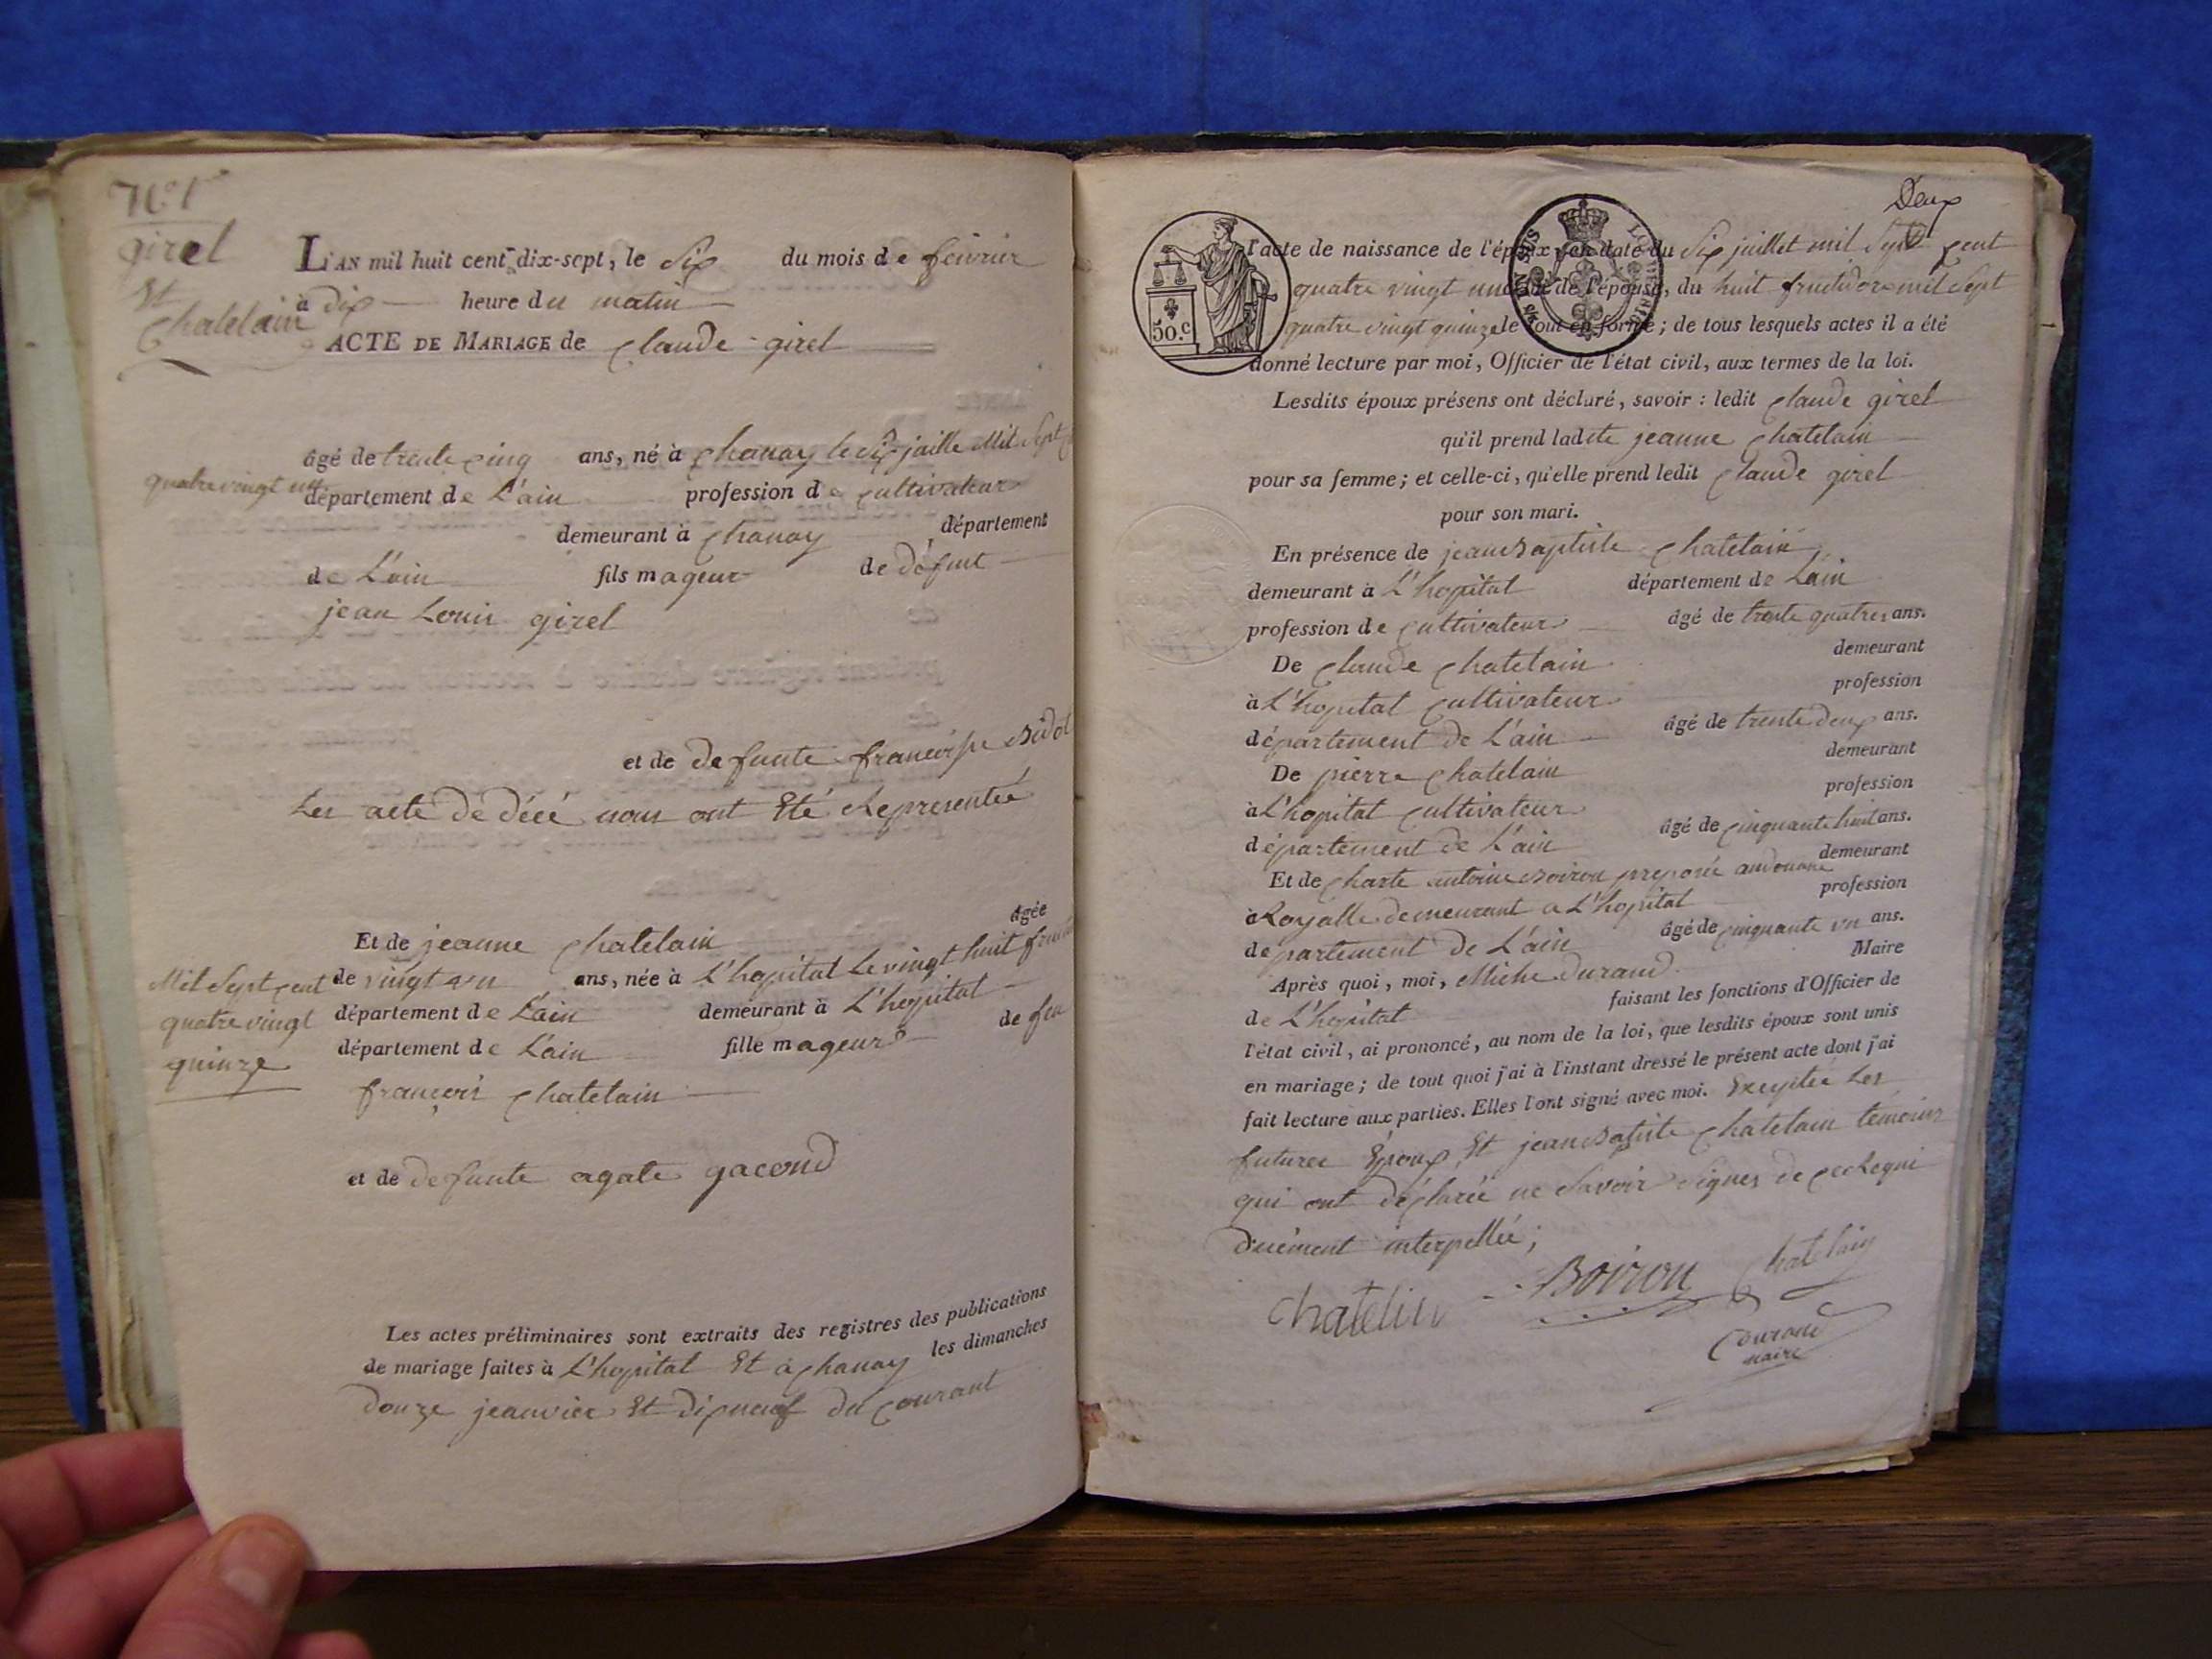 N.° 1er
girel
Et
Chatelain
L'AN mil huit cent dix-sept, le Six du mois de feivrier
à dix heure du matin
ACTE DE MARIAGE de Claude girel
âgé de trente cinq ans, né à Chanay le Six juille Mil Sept
quatre vingt un
département de L'ain profession de Cultivateur
demeurant à Chanay département
de L'ain fils mageur de défunt
jean Louis girel
et de defunte francoise
Les acte de décé nous ont Eté Representée
Et de jeanne Chatelain âgée
de vingt un ans, née à L'hopital Le vingt huit
Mil Sept cent
quatre vingt
quinze
département de L'ain demeurant à L'hopital
département de L'ain fille mageure de feu
françois Chatelain
et de defunte agate gacond
Les actes préliminaires sont extraits des registres des publications
de mariage faites à L'hopital Et à Chanay les dimanches
douze jeanvier Et dixneuf du Courant
Deux
50.c
l'acte de naissance de l'époux en date du Six juillet mil Sept Cent
quatre vingt un de l'épouse, du huit fructidore mil Sept
quatre vingt quinze le tout en forme; de tous lesquels actes il a été
donné lecture par moi, Officier de l'état civil, aux termes de la loi.
Lesdits époux présens ont déclaré, savoir : ledit Claude girel
qu'il prend ladite jeanne Chatelain
pour sa femme; et celle-ci, qu'elle prend ledit Claude girel
pour son mari.
En présence de jean Baptiste Chatelain
demeurant à L'hopital département de L'ain
profession de Cultivateur âgé de trente quatres ans.
De Claude Chatelain demeurant
à L'hopital Cultivateur profession
département de L'ain âgé de trente deux ans.
De pierre Chatelain demeurant
à L'hopital Cultivateur profession
département de L'ain âgé de Cinquante huit ans.
Et de Charle antoine Boiron preposé audouane demeurant
Royalle demeurant a L'hopital profession
departement de L'ain âgé de Cinquante un ans.
Après quoi, moi, Miche Durand Maire
de L'hopital faisant les fonctions d'Officier de
l'état civil, ai prononcé, au nom de la loi, que lesdits époux sont unis
en mariage; de tout quoi j'ai à l'instant dressé le présent acte dont j'ai
fait lecture aux parties. Elles l'ont signé avec moi. Exceptée Les
futures Epoux Et jean Batiste Chatelain temoins
qui ont déclarée ne Savoir Signer de ce Requi
duement interpellée;
Chatelin Boiron Chatelain
Durand
maire